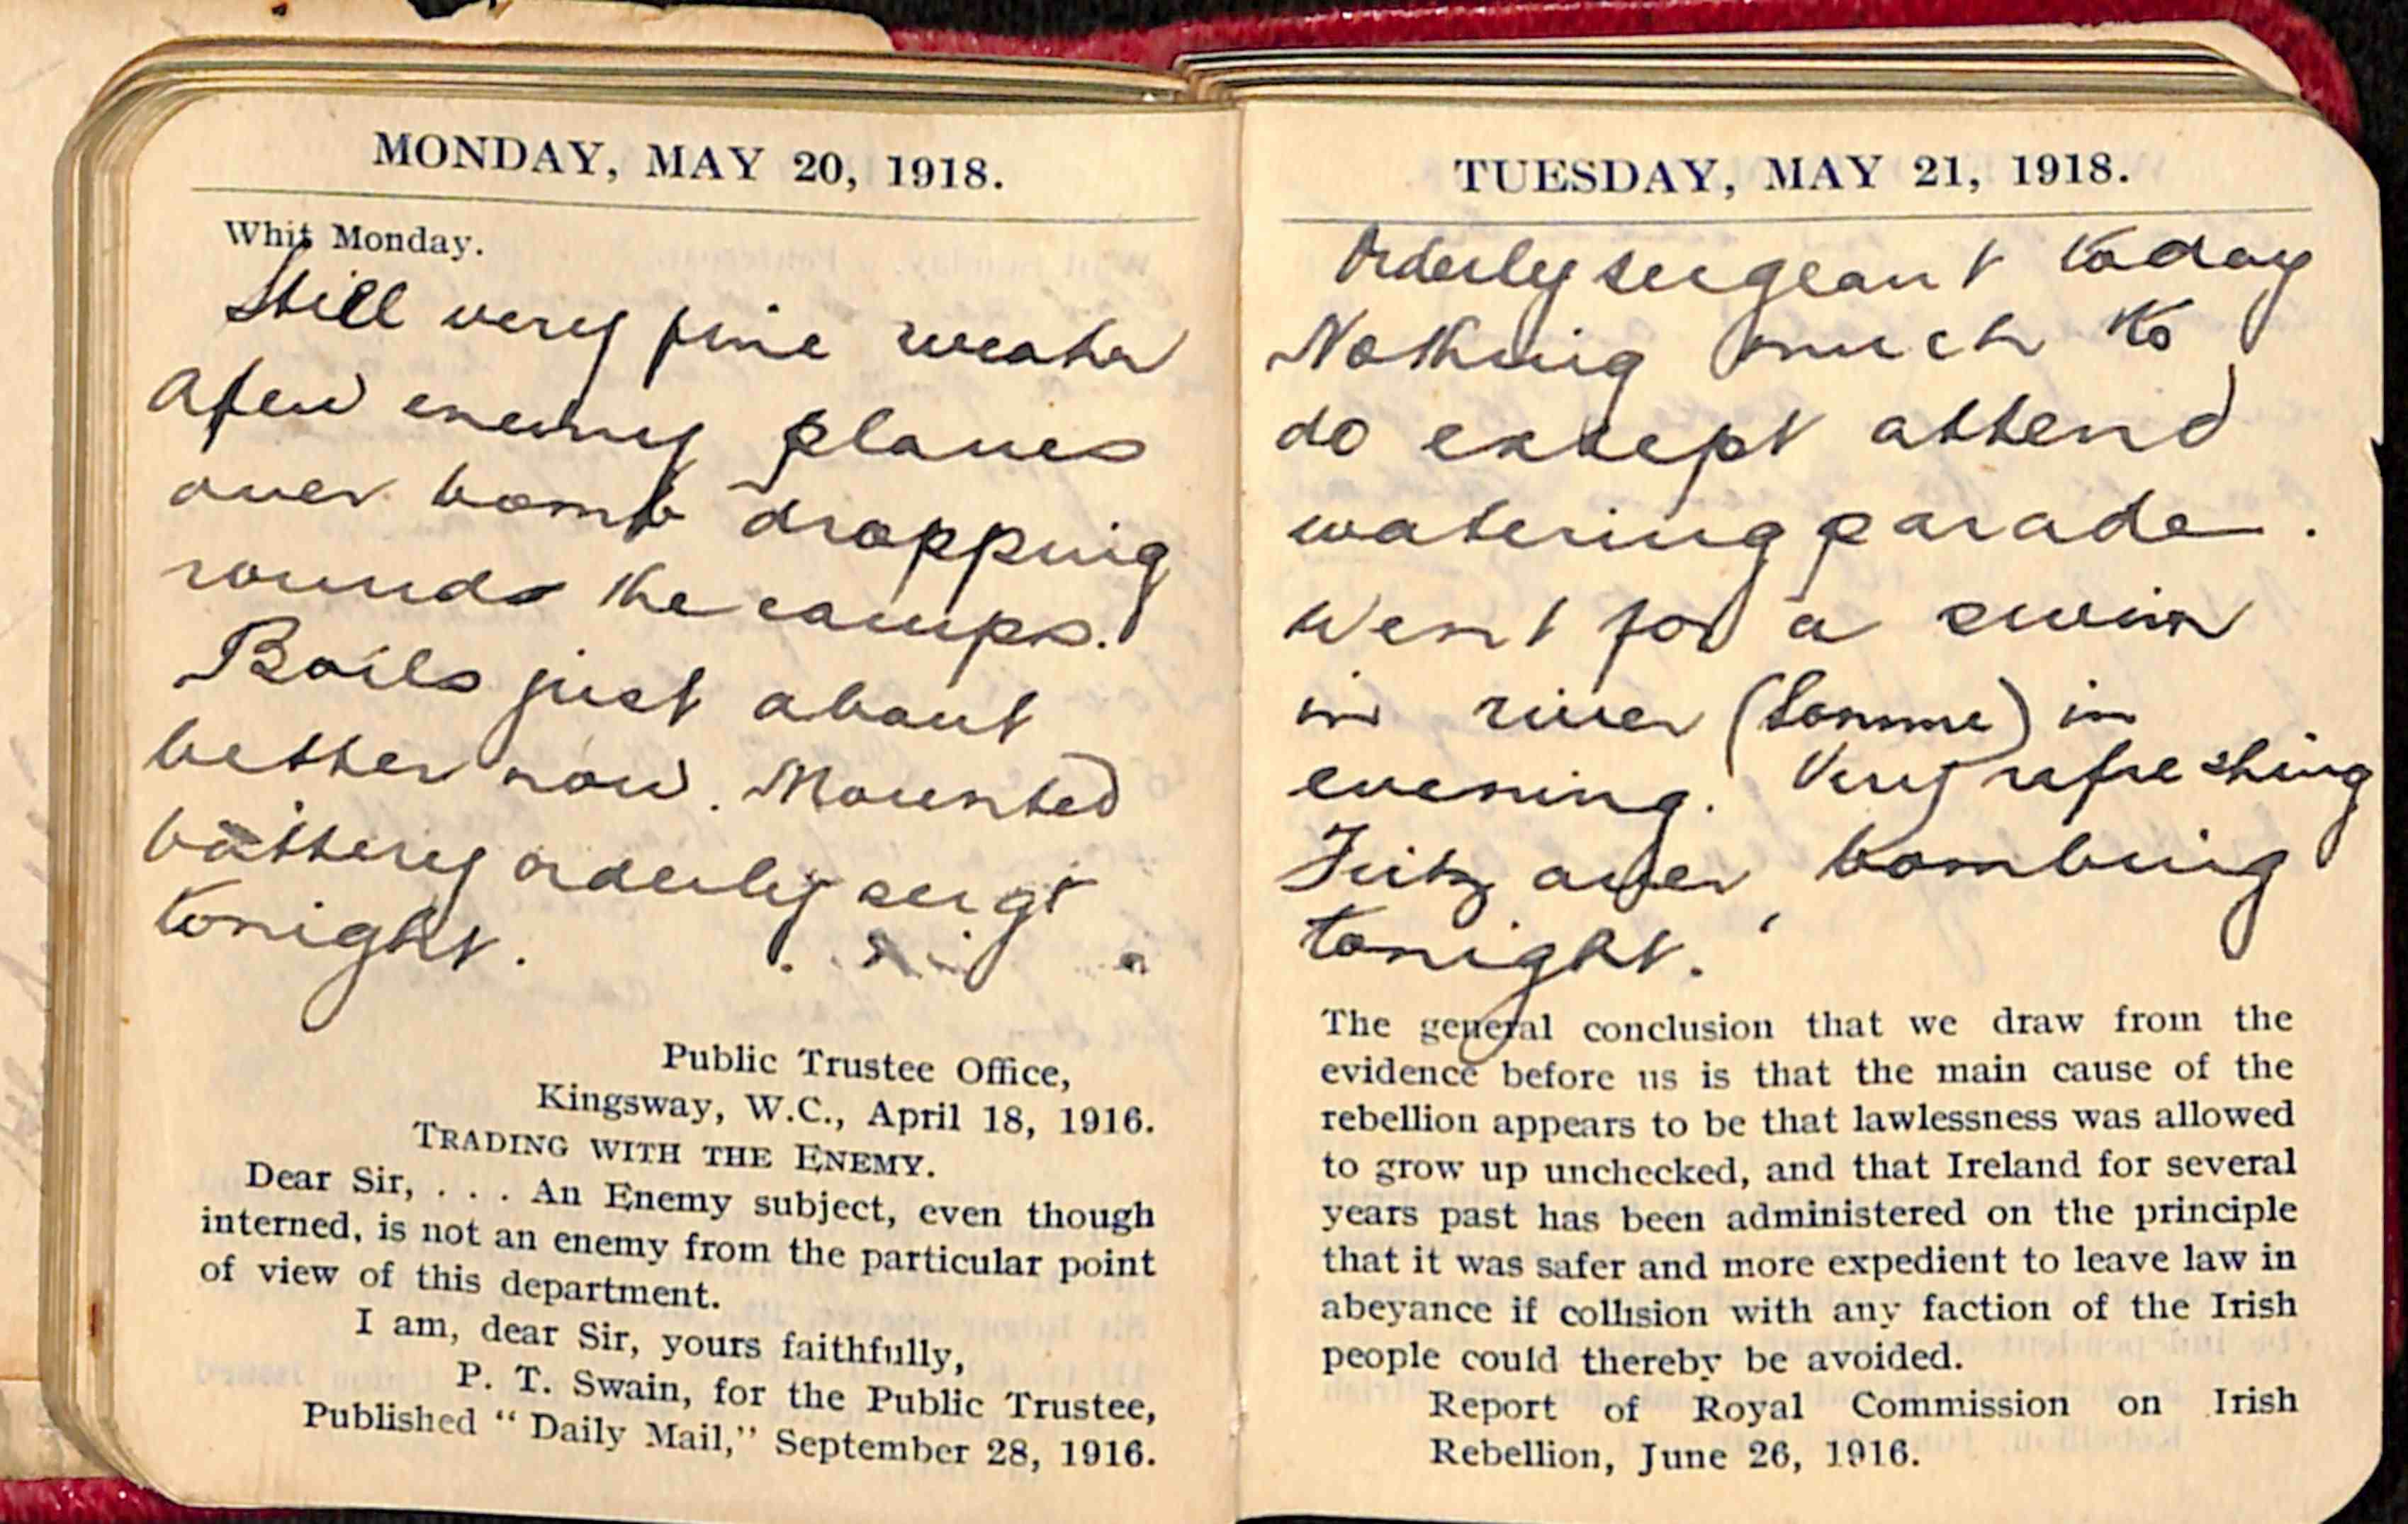 MONDAY, MAY 20, 1918.
Whit Monday.
Still very fine weather
A few enemy planes
over bomb dropping
rounds the camps.
Boils just about
better now. Mounted
battery orderly sergt
tonight.
Public Trustee Office,
Kingsway, W.C., April 18, 1916.
TRADING WITH THE ENEMY.
Dear Sir, . . . An Enemy subject, even though
interned, is not an enemy from the particular point
of view of this department.
I am, dear Sir, yours faithfully,
P. T. Swain, for the Public Trustee,
Published "Daily Mail," September 28, 1916.
TUESDAY, MAY 21, 1918.
Orderly sergeant today
Nothing much to
do except attend
watering parade.
Went for a swim
in river (Somme) in
evening. Very refreshing
Fritz over, bombing
tonight.
The general conclusion that we draw from the
evidence before us is that the main cause of the
rebellion appears to be that lawlessness was allowed
to grow up unchecked, and that Ireland for several
years past has been administered on the principle
that it was safer and more expedient to leave law in
abeyance if collision with any faction of the Irish
people could thereby be avoided.
Report of Royal Commission on Irish
Rebellion, June 26, 1916.